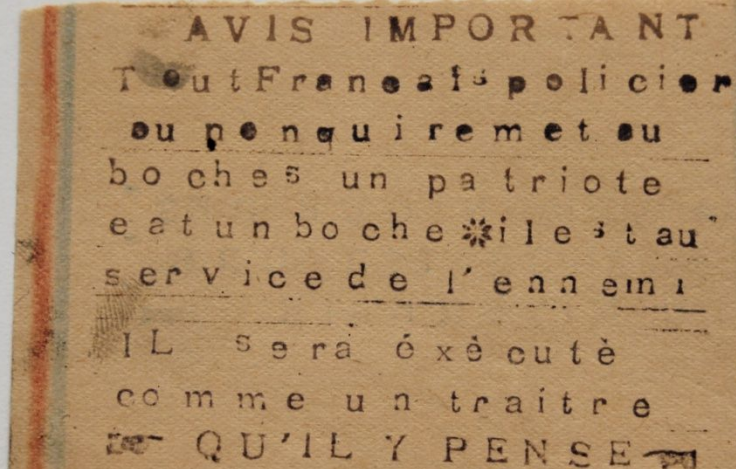 AVIS IMPORTANT
Tout Francais policier
ou non qui remet au
boches un patriote
eatun boche * il est au
service de l'ennemi
IL sera éxècutè
comme un traitre
QU'IL Y PENSE